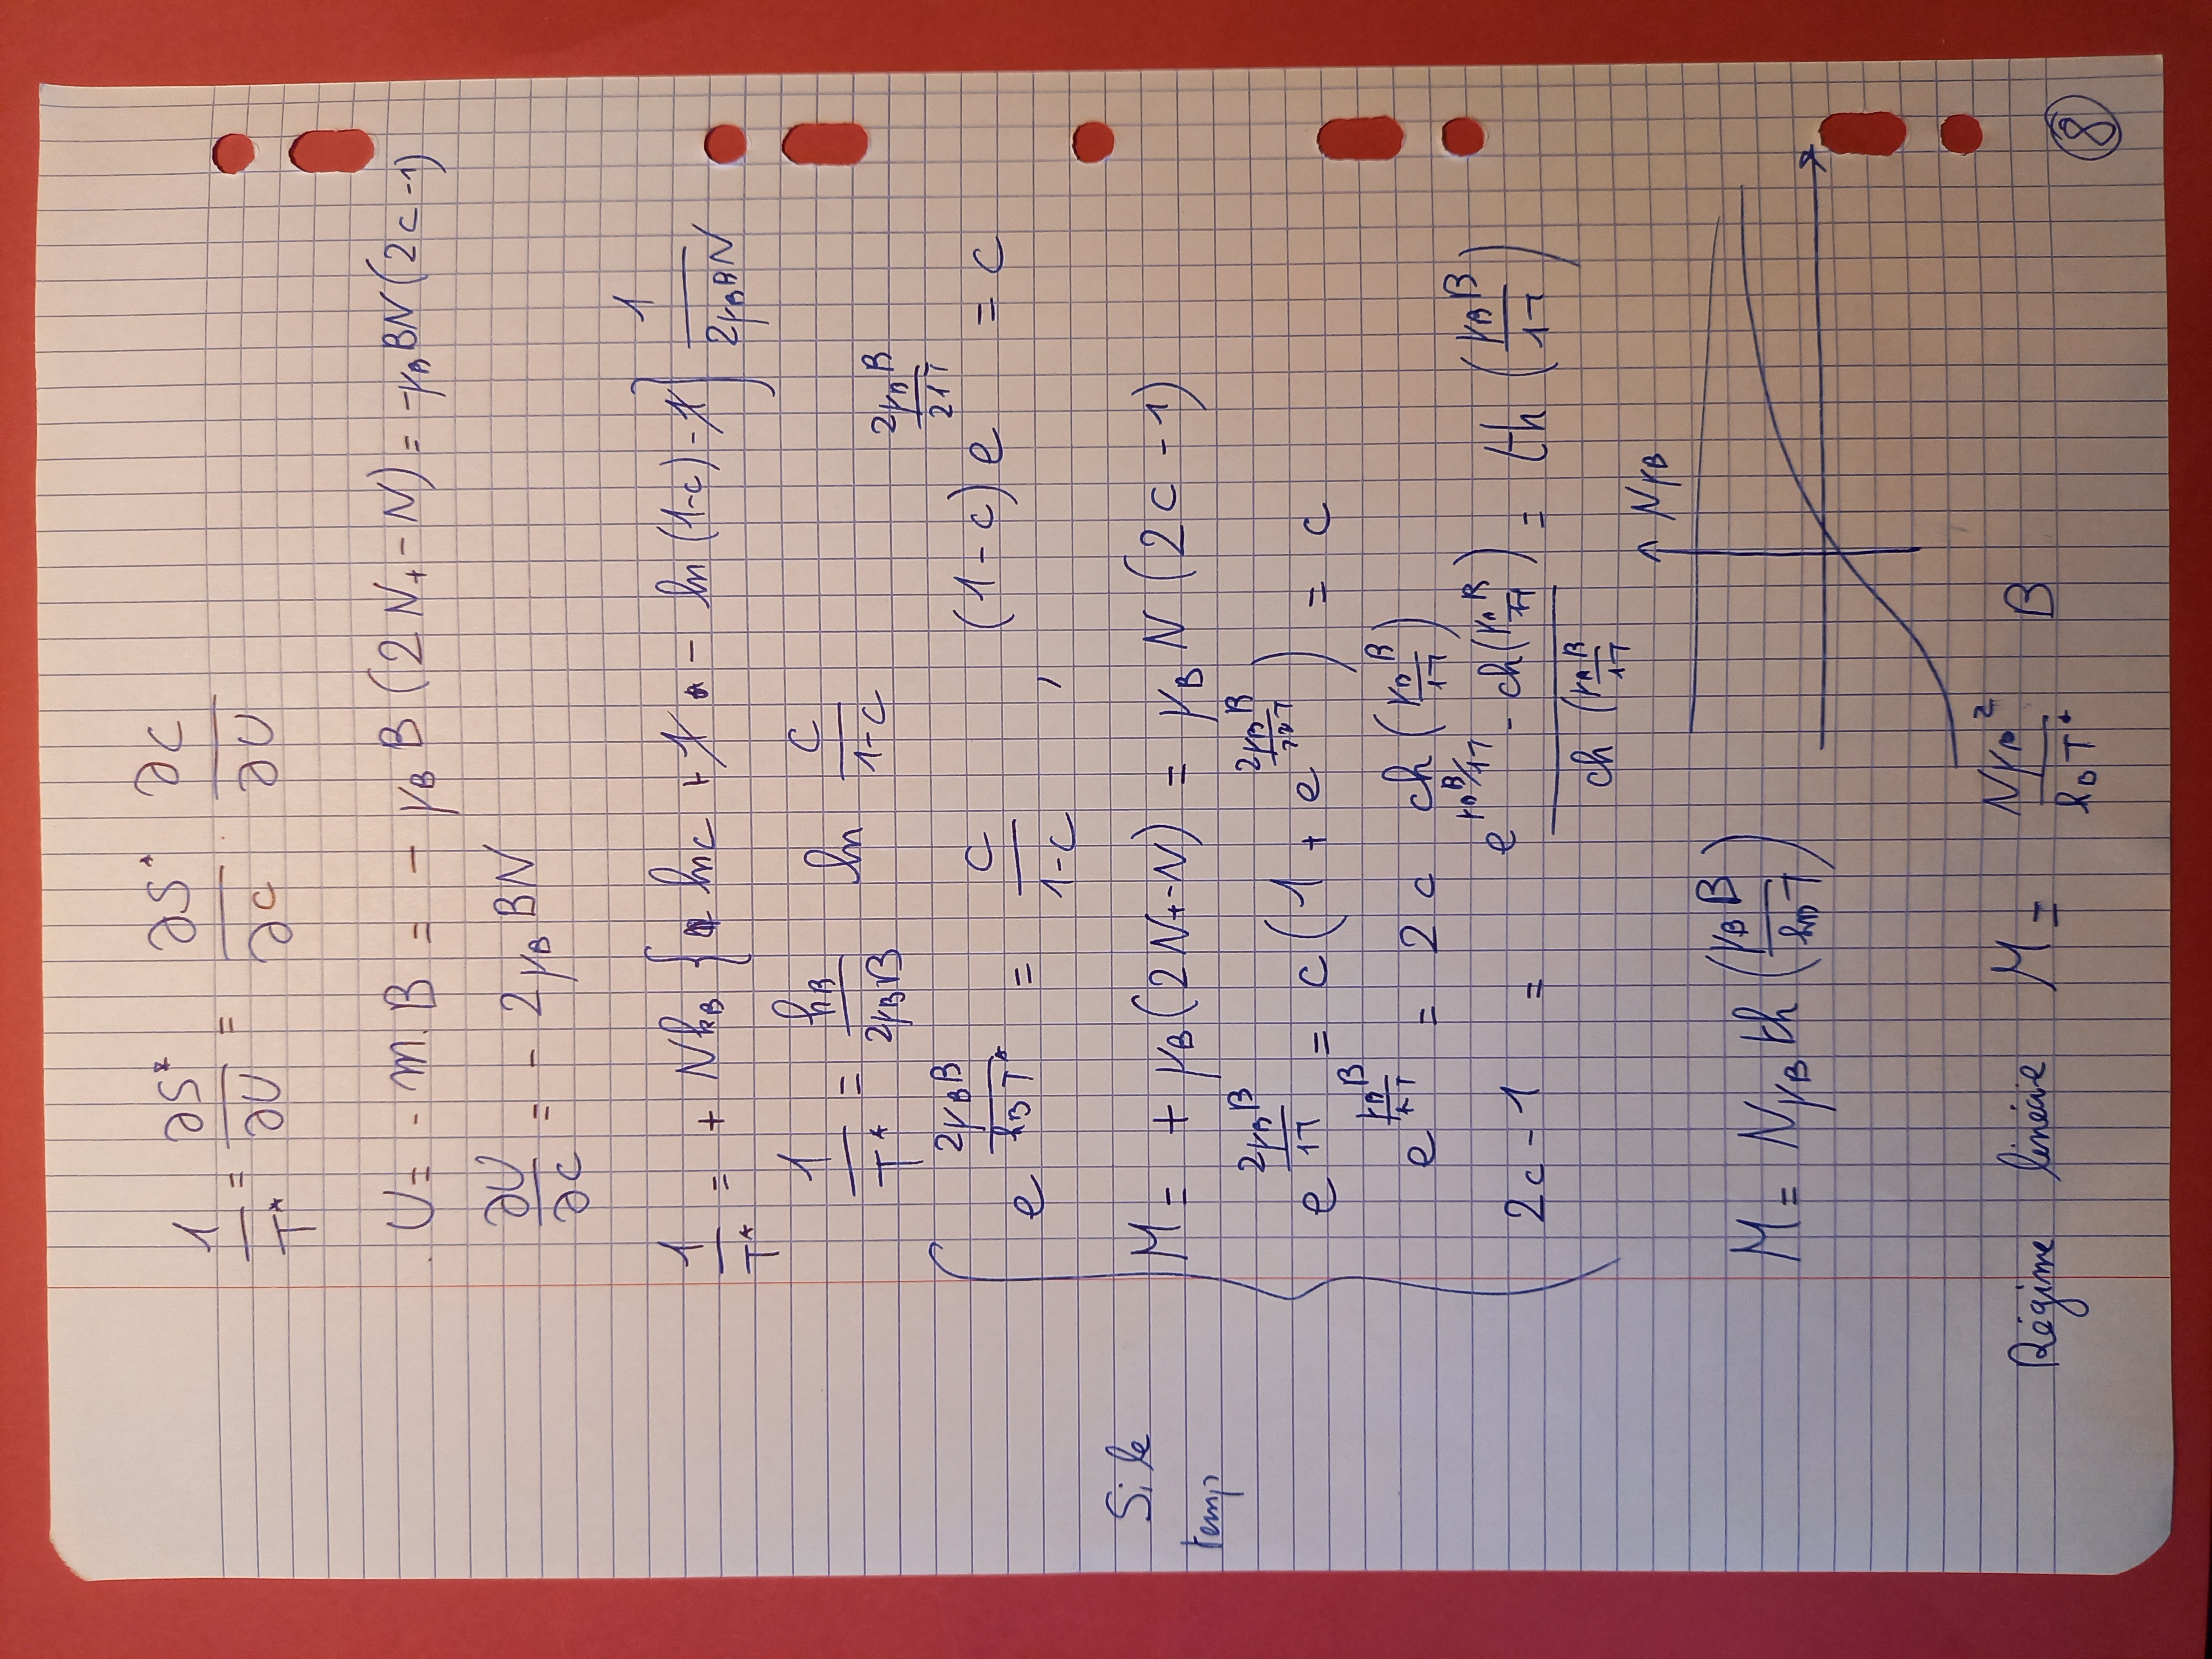 1/T* = ∂S*/∂U = ∂S*/∂c · ∂c/∂U
U = - m.B = - μ_B B (2N₊ - N) = - μ_B BN (2c - 1)
∂U/∂c = - 2μ_B BN
1/T* = + Nk_B { ln c + 1 - ln (1-c) - 1 } 1/(2μ_B BN)
1/T* = k_B/(2μ_B B) ln c/(1-c)
e^(2μ_B B/(k_B T*)) = c/(1-c) , (1-c) e^(2μ_B B/(21T)) = c
M = + μ_B (2N₊ - N) = μ_B N (2c - 1)
Si le
temp
e^(2μ_B B/(1T)) = c (1 + e^(2μ_B B/T)) = c
e^(μ_B B/(kT)) = 2c ch (μ_B B/(1T))
2c - 1 = (e^(μ_B B/1T) - ch (μ_B B/(T)))/(ch (μ_B B/(1T))) = th (μ_B B/(1T))
Nμ_B
M = Nμ_B th (μ_B B/(k_B T))
Régime linéaire M = Nμ_B²/(k_B T*) B
8